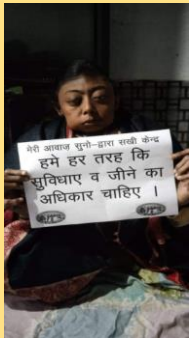 मेरी आवाज़ सुनो-द्वारा सखी केन्द्र
हमे हर तरह कि
सुविधाए व जीने का
अधिकार चाहिए ।